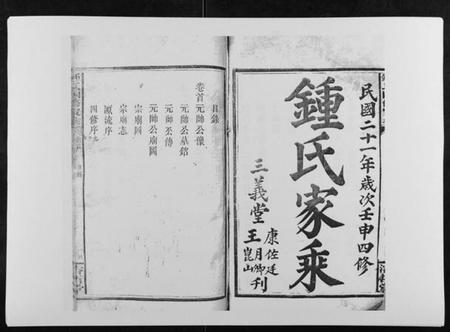 民國二十一年歲次壬申四修
鍾氏家乘
三義堂
康佐廷
王月卿刊
崑山
目錄
卷首
元帥公像
元帥公墓銘
元帥公傳
元帥公廟圖
宗廟圖
宗廟志
源流序
四修序